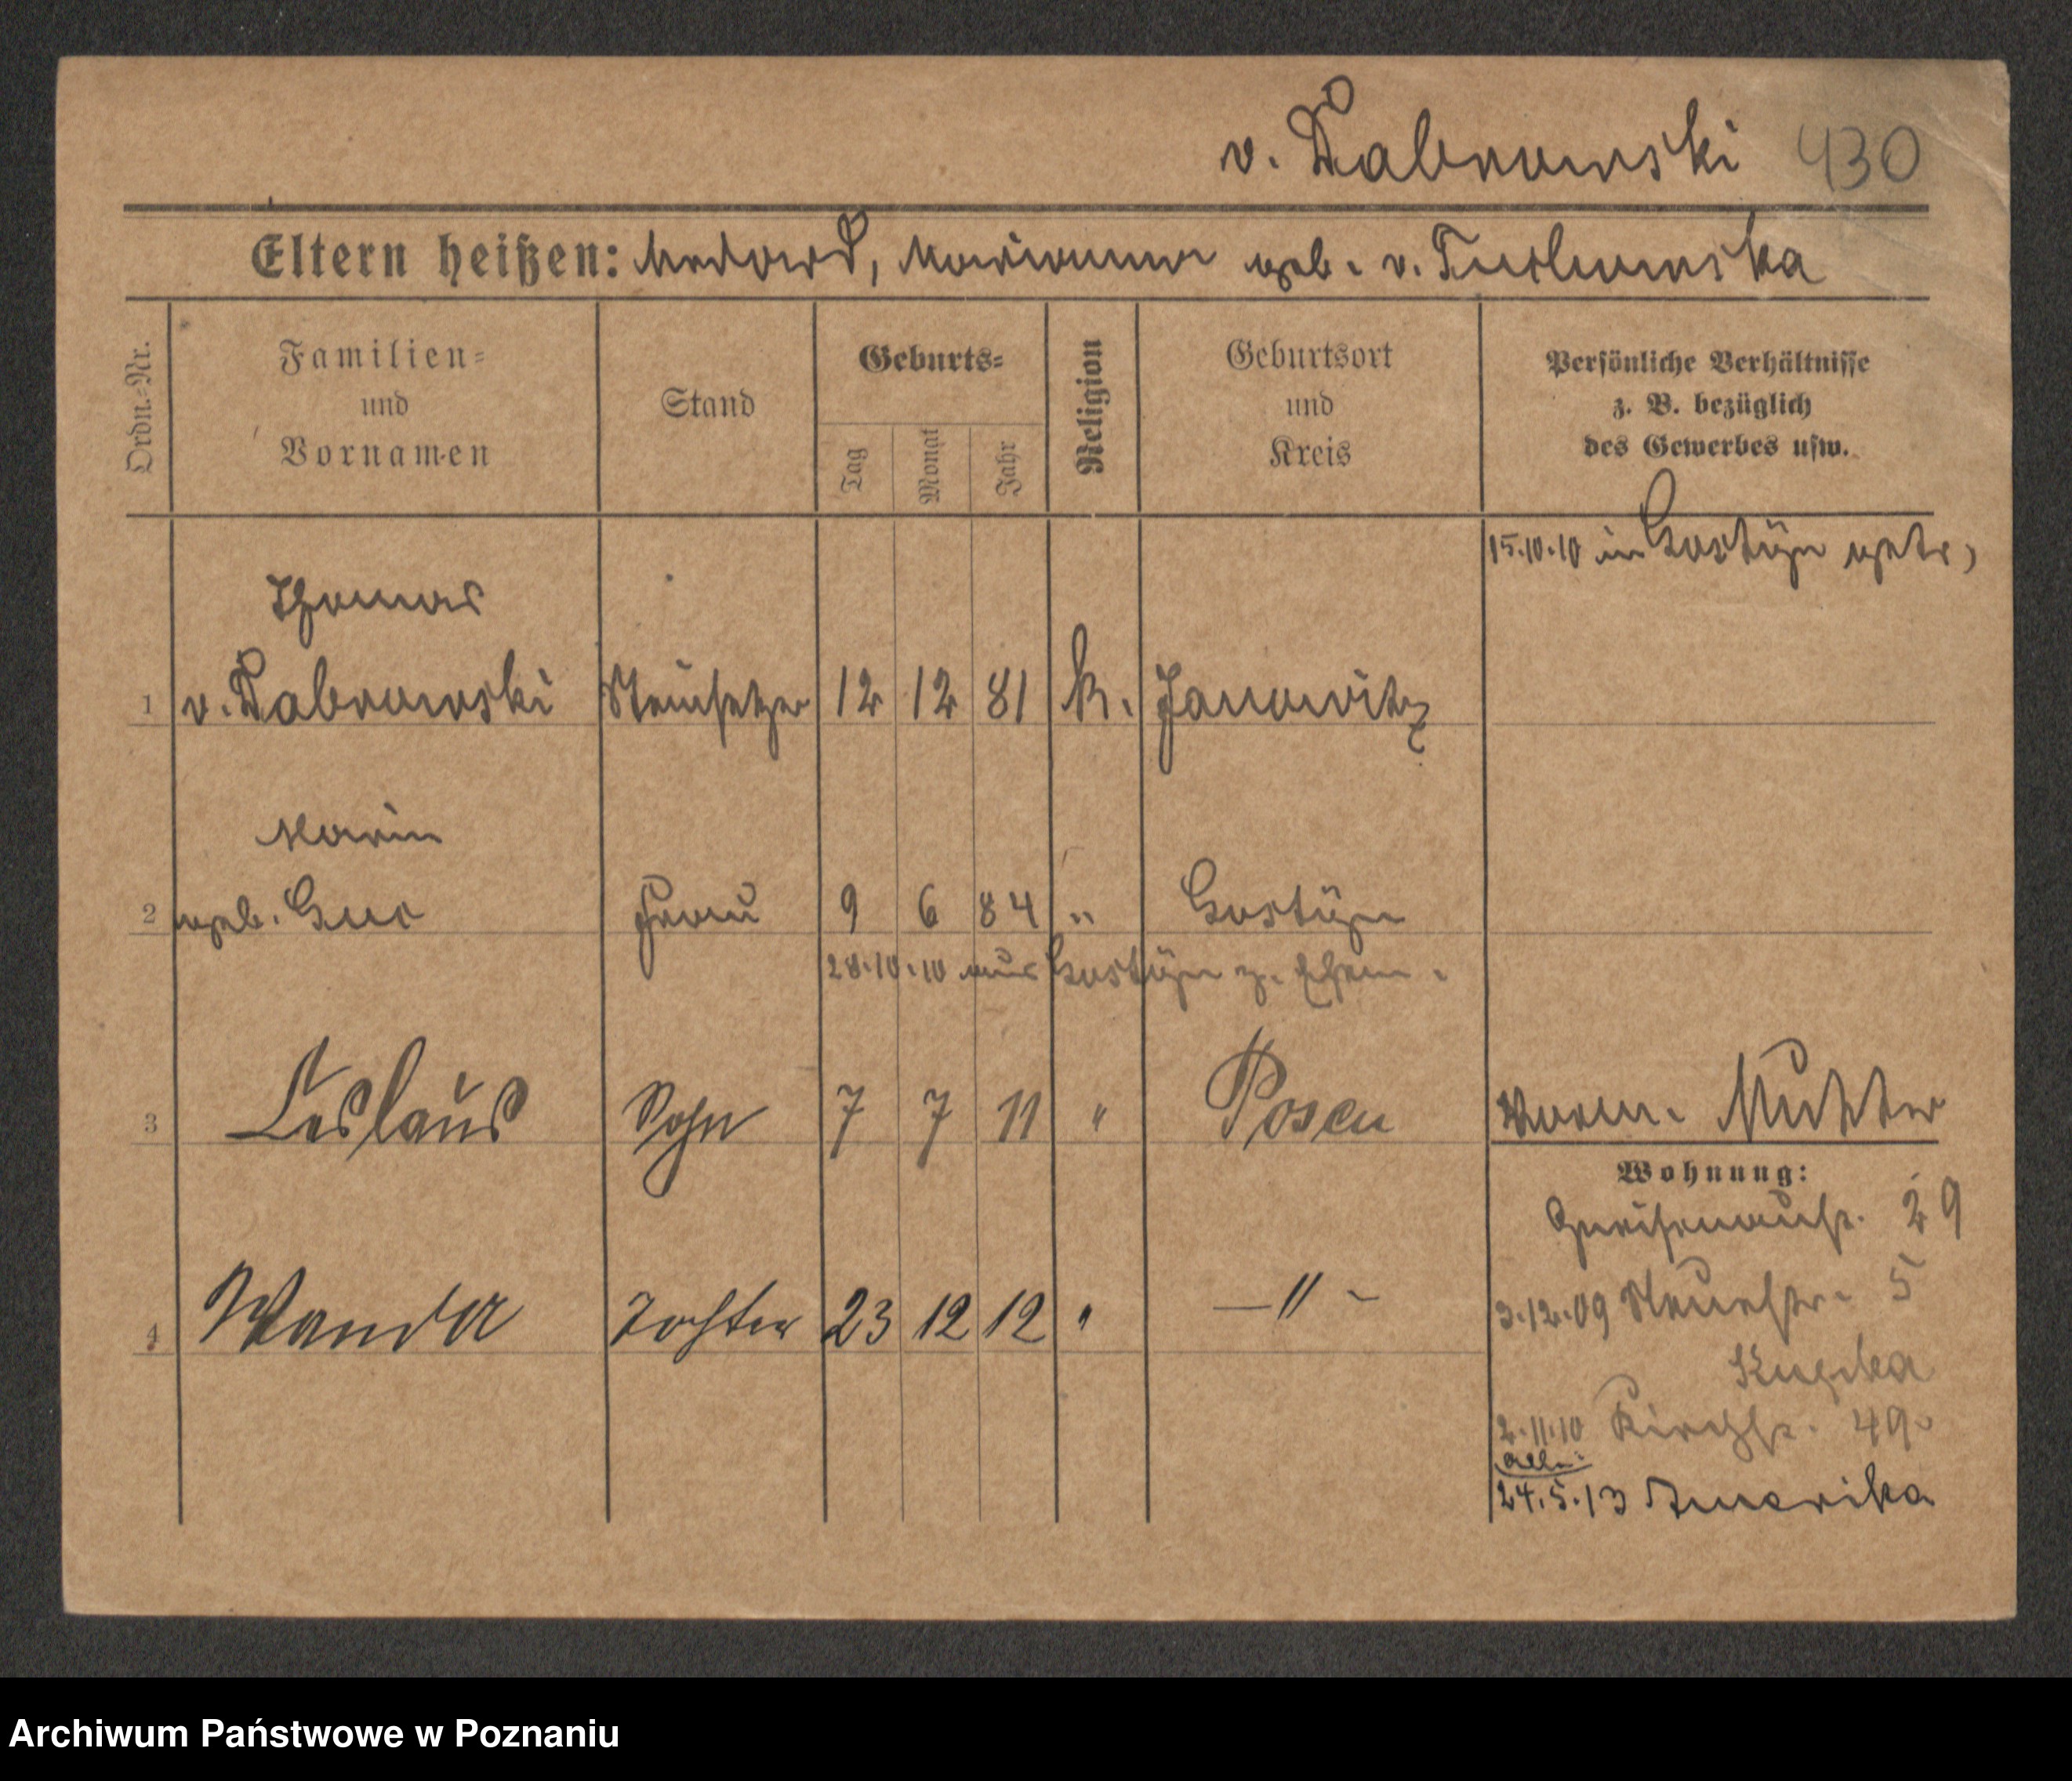 v. Dabrowski 430
Eltern heißen: Medard, Marianna geb. v.
Ordn.-Nr.
Familien- und Vornamen
Stand
Geburts-
Tag
Monat
Jahr
Religion
Geburtsort und Kreis
Persönliche Verhältnisse z. B. bezüglich des Gewerbes usw.
15.10.10 in Gostyn getr,
Thomas
1 v. Dabrowski Steinsetzer 12 12 81 k. Janowitz
Maria
2 geb. Guc Frau 9 6 84 " Gostyn
28.10.10 aus Gostyn z. Ehem.
3 Leslaus Sohn 7 7 11 " Posen Vorm. Mutter
Wohnung:
Gneisenaustr. 29
4 Wanda Tochter 23 12 12 " — " –
3.12.09 Neuestr. 5
2.11.10 Kirchstr. 49
all.
24.5.13 Amerika
Archiwum Państwowe w Poznaniu